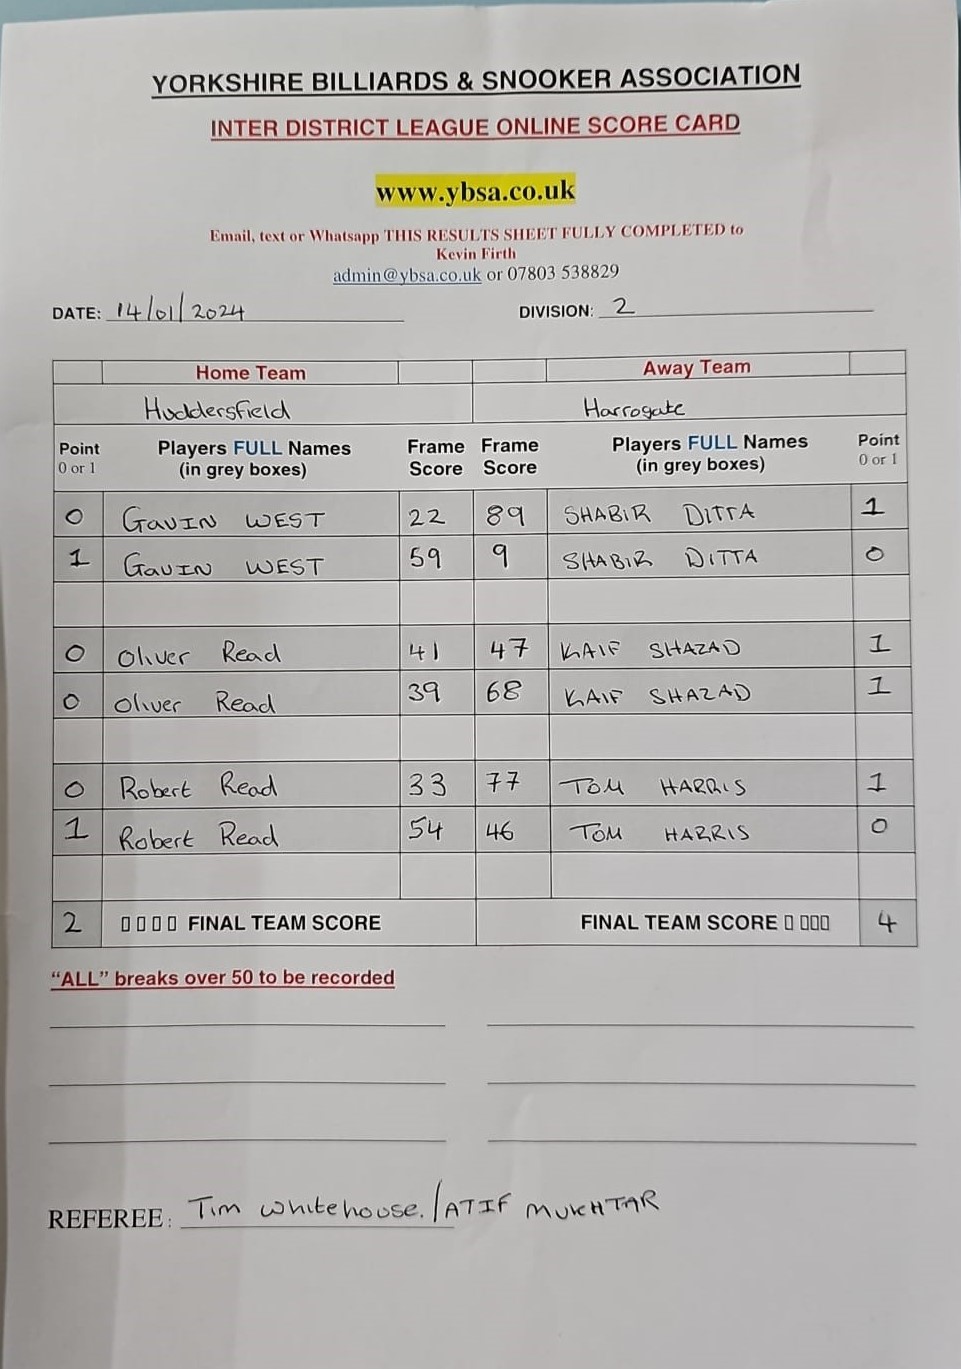 YORKSHIRE BILLIARDS & SNOOKER ASSOCIATION
INTER DISTRICT LEAGUE ONLINE SCORE CARD
www.ybsa.co.uk
Email, text or Whatsapp THIS RESULTS SHEET FULLY COMPLETED to
Kevin Firth
admin@ybsa.co.uk or 07803 538829
DATE: 14/01/2024 DIVISION: 2
Home Team Away Team
Huddersfield Harrogate
Point Players FULL Names Frame Frame Players FULL Names Point
0 or 1 (in grey boxes) Score Score (in grey boxes) 0 or 1
0 GAVIN WEST 22 89 SHABIR DITTA 1
1 GAVIN WEST 59 9 SHABIR DITTA 0
0 Oliver Read 41 47 KAIF SHAZAD 1
0 Oliver Read 39 68 KAIF SHAZAD 1
0 Robert Read 33 77 TOM HARRIS 1
1 Robert Read 54 46 TOM HARRIS 0
2 FINAL TEAM SCORE FINAL TEAM SCORE 4
“ALL” breaks over 50 to be recorded
REFEREE: Tim Whitehouse. / ATIF MUKHTAR